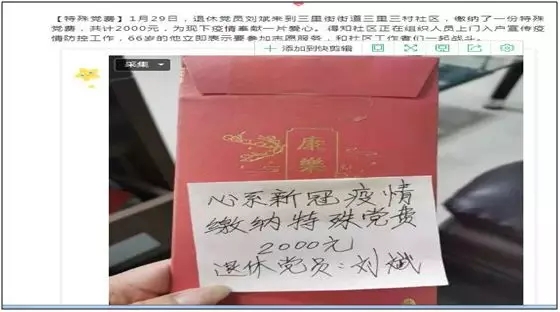 【特殊党费】1月29日，退休党员刘斌来到三里街街道三里三村社区，缴纳了一份特殊
党费，共计2000元，为现下疫情奉献一片爱心。得知社区正在组织人员上门入户宣传疫
情防控工作，66岁的他立即表示要参加志愿服务，和社区工作者们一起战斗。
添加到快剪辑
采集
康樂
心系新冠疫情
缴纳特殊党费
2000元
退休党员:刘斌